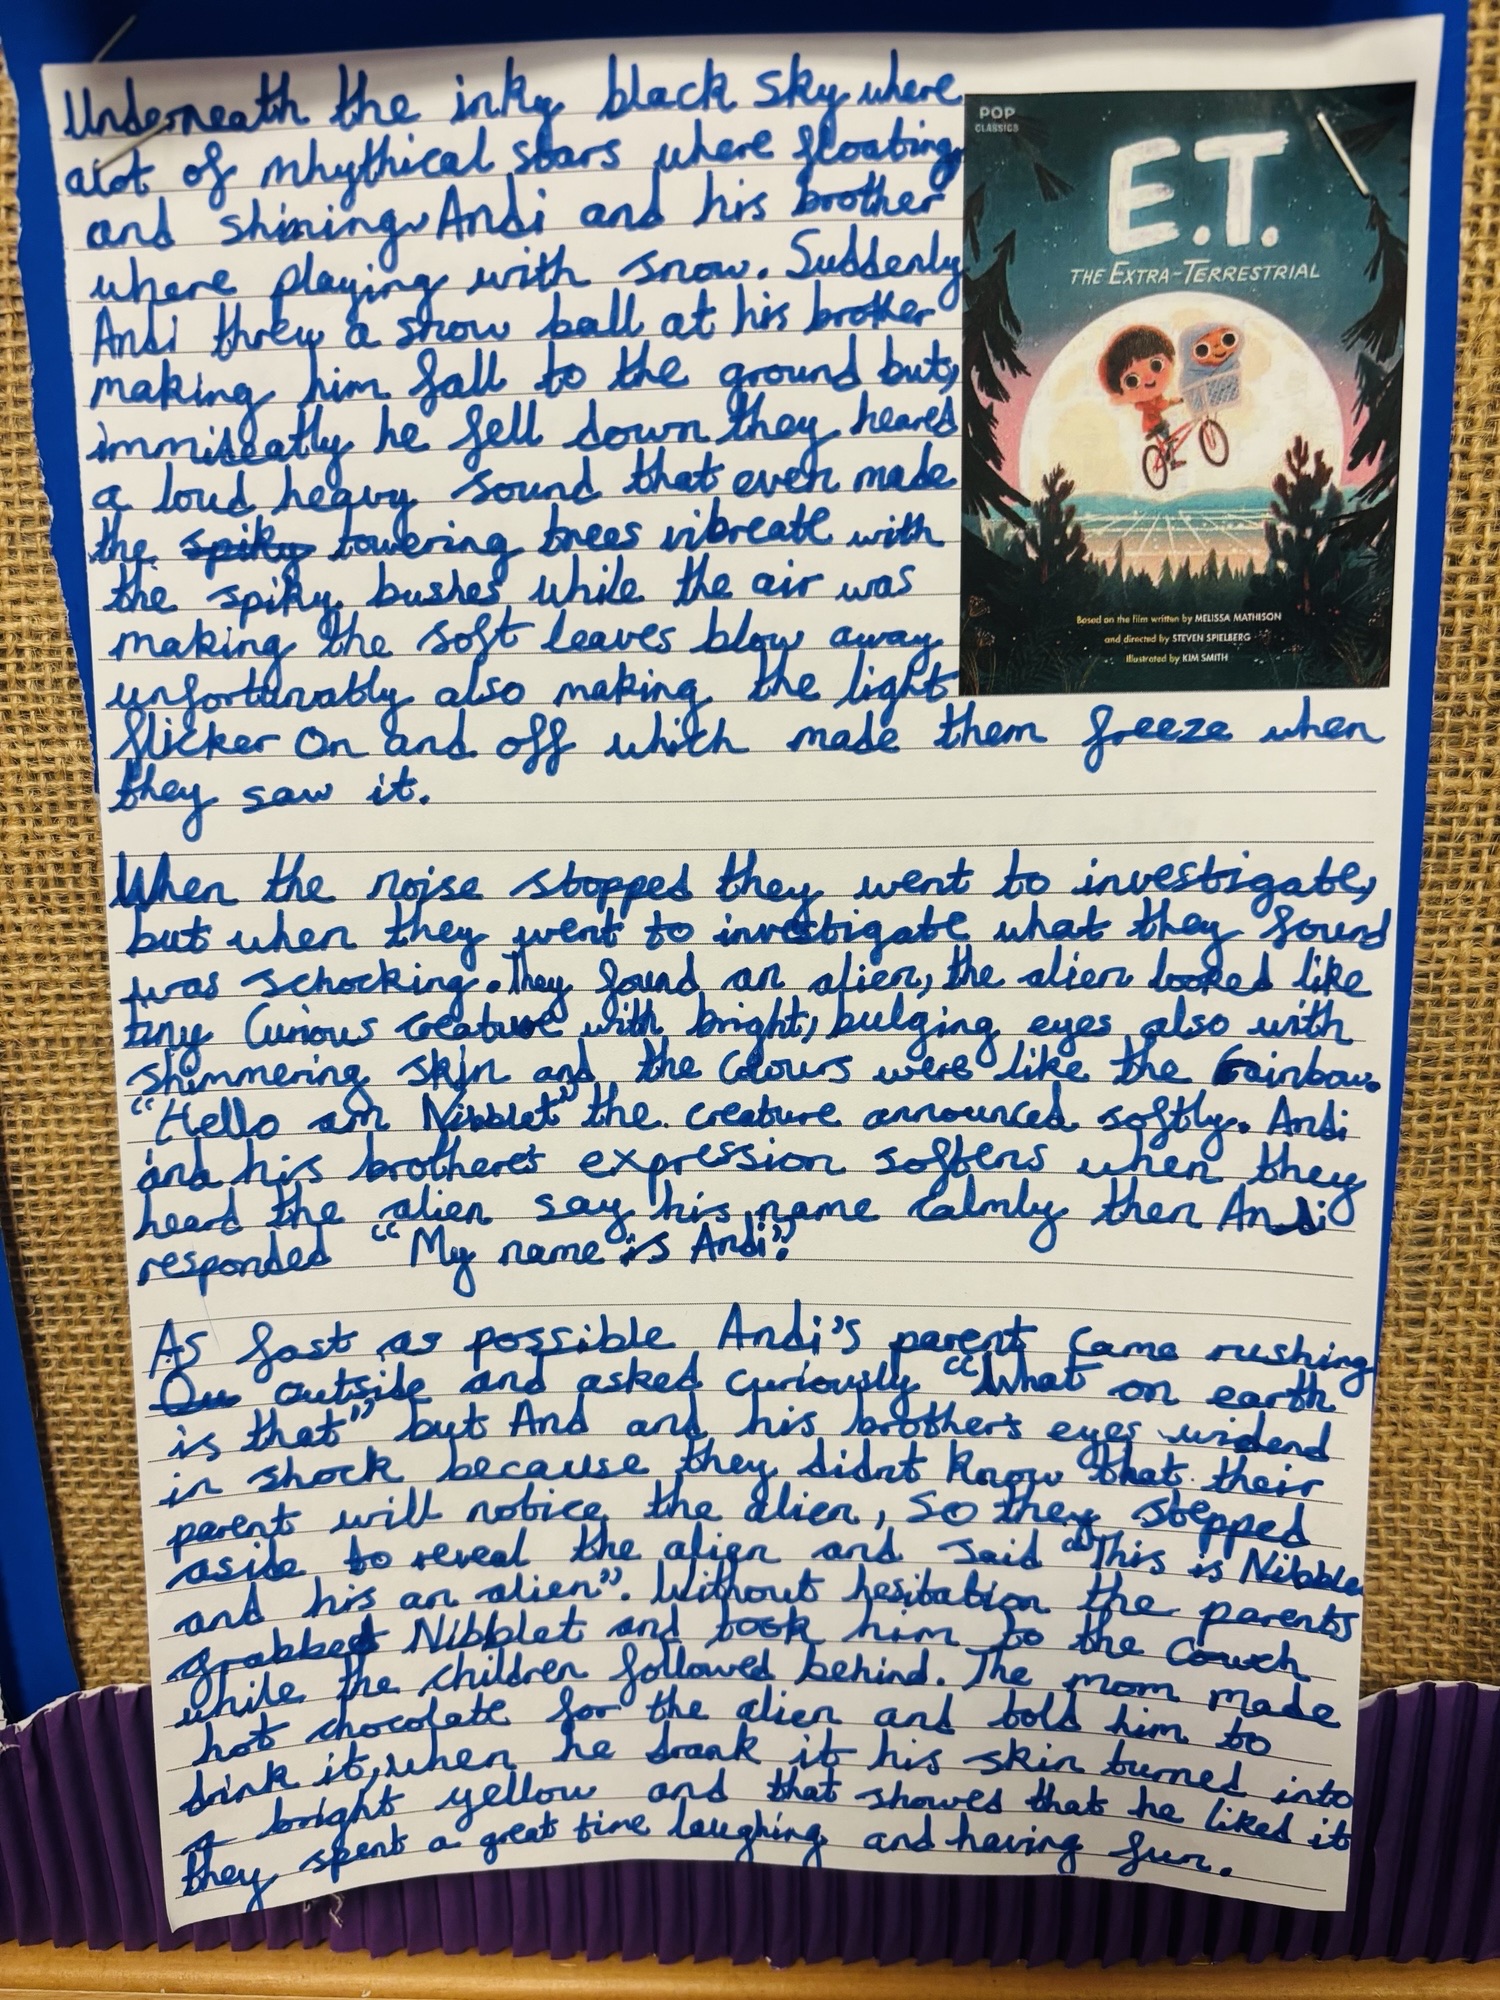 Underneath the inky black sky where
alot of mhythical stars where floating
and shining. Andi and his brother
where playing with snow. Suddenly
Andi threw a snow ball at his brother
making him fall to the ground but,
immideatly he fell down they heared
a loud heavy sound that even made
the spiky towering trees vibreate with
the spiky bushes while the air was
making the soft leaves blow away
unfortunatly also making the light
flicker on and off which made them freeze when
they saw it.
POP
CLASSICS
E.T.
THE EXTRA-TERRESTRIAL
Based on the film written by MELISSA MATHISON
and directed by STEVEN SPIELBERG
Illustrated by KIM SMITH
When the noise stopped they went to investigate,
but when they went to investigate what they found
was schocking. They found an alien, the alien looked like
tiny Curious creature with bright, bulging eyes also with
shimmering skin and the colours were like the rainbow.
“Hello am Nibblet” the creature announced softly. Andi
and his brother's expression softens when they
heard the alien say his name calmly then Andi
responded “My name is Andi”.
As fast as possible Andi's parent came rushing
Ou outside and asked curiously “What on earth
is that” but And and his brother's eyes widend
in shock because they didnt know that their
parent will notice the alien, so they stepped
aside to reveal the alien and said “This is Nibble
and his an alien”. Without hesitation the parents
grabbed Nibblet and took him to the couch
while the children followed behind. The mom made
hot chocolate for the alien and told him to
drink it, when he drank it his skin turned into
a bright yellow and that showes that he liked it
they spent a great time laughing and having fun.